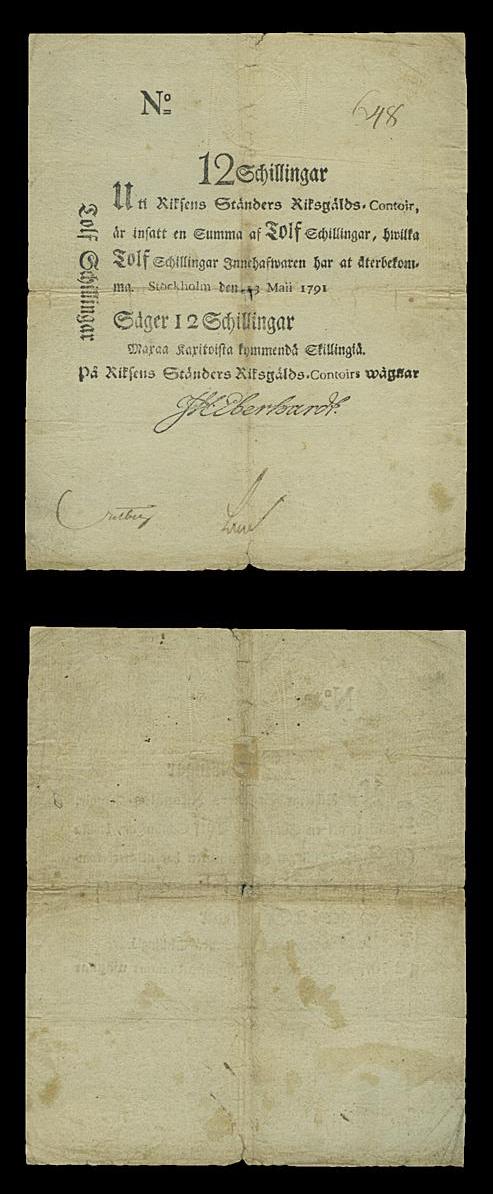 No
648
12 Schillingar
Uti Riksens Ständers Riksgälds-Contoir,
är insatt en Summa af Tolf Schillingar, hwilka
Tolf Schillingar Innehafwaren har at återbekom-
ma. Stockholm den 3 Maii 1791
Säger 12 Schillingar
Maxaa Kaxitoista kymmendä Skillingiä.
På Riksens Ständers Riksgälds-Contoirs wägnar
JH Eberhardt.
Tolf Schillingar